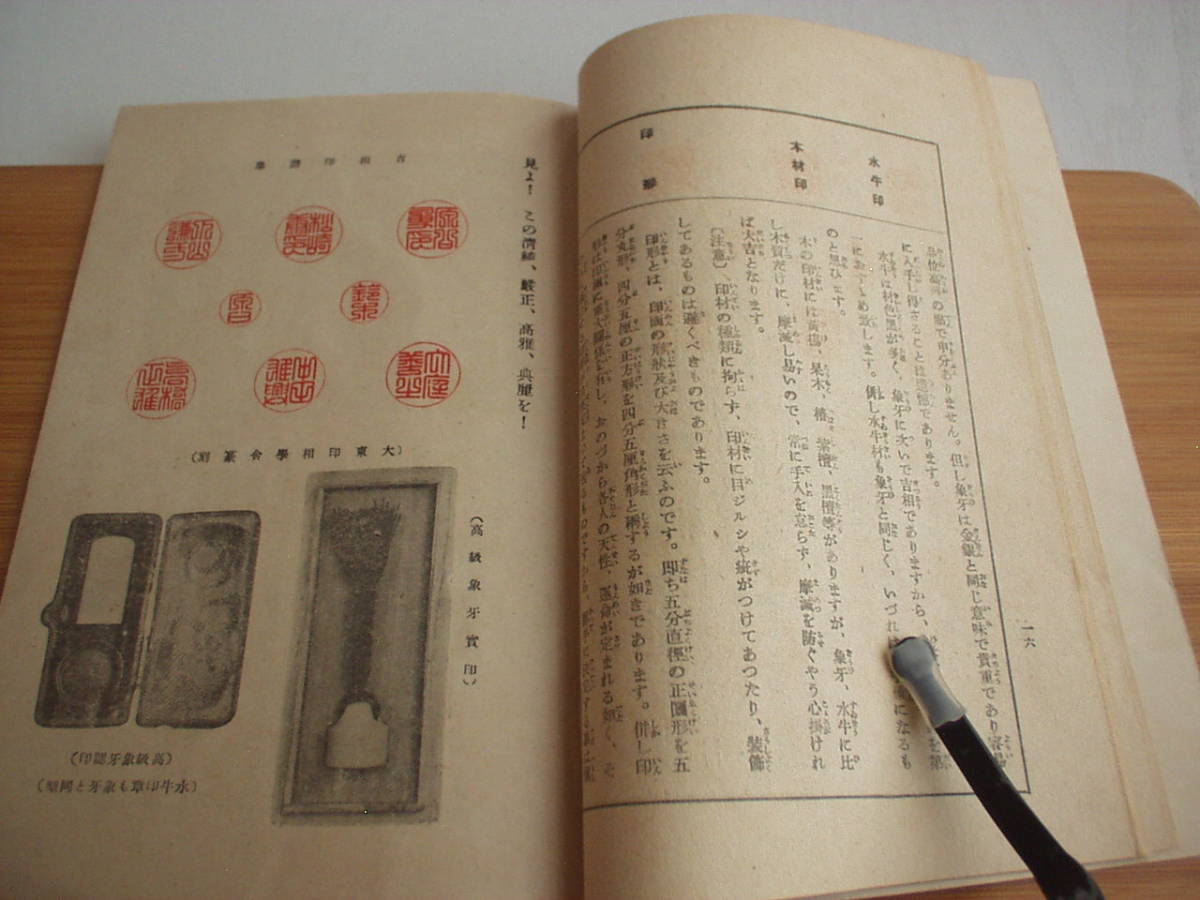 一六
水牛印
木材印
印
品位高
の點で申分ありません。但し象牙は金銀と同じ意味で貴重であり容易
に入手し得ざることは遺憾であります。
水牛は材色黒が多く、象牙に次いで吉相でありますから、
を第
一におすすめ致します。但し水牛材も象牙と同じく、いづれ
になるも
のと思ひます。
木の印材には黄楊、果木、椿、紫檀、黒檀等がありますが、象牙、水牛に比
し木質だけに、摩滅し易いので、常に手入を怠らず、摩滅を防ぐやう心掛けれ
ば大吉となります。
〔注意〕、印材の種類に拘らず、印材に目ジルシや疵がつけてあつたり、裝飾
してあるものは避くべきものであります。
印形とは、印面の形狀及び大きさを云ふのです。即ち五分直徑の正圓形を五
分丸形、四分五厘の正方形を四分五厘角形と稱するが如きであります。併し印
各人の天性、運命が定まれる如く、そ
見よ！この淸純、嚴正、高雅、典麗を！
吉相印譜集
松崎
鈴木
高橋
（大東印相學會篆刻）
（高級象牙實印）
（高級象牙認印）
（水牛印章も象牙と同型）